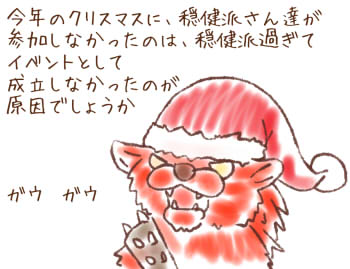 今年のクリスマスに、穏健派さん達が
参加しなかったのは、穏健派過ぎて
イベントとして
成立しなかったのが
原因でしょうか
ガウ　ガウ